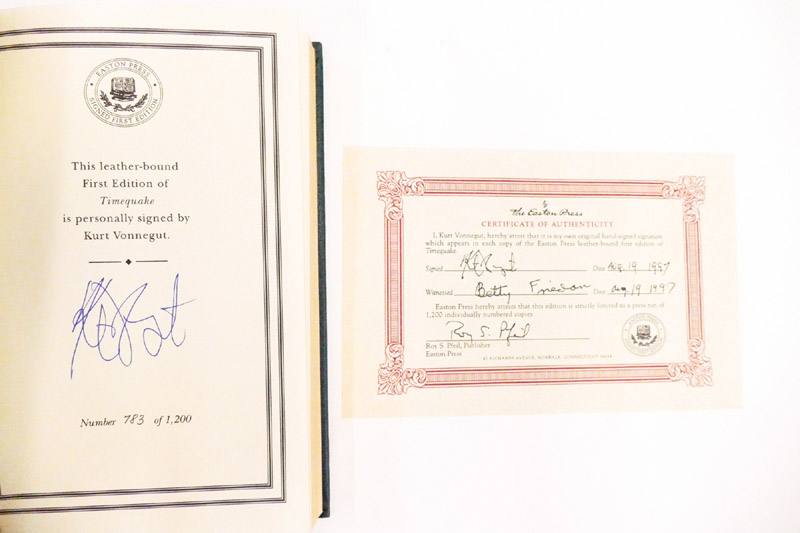 EASTON PRESS
SIGNED FIRST EDITION
This leather-bound
First Edition of
Timequake
is personally signed by
Kurt Vonnegut.
Number 783 of 1,200
The Easton Press
CERTIFICATE OF AUTHENTICITY
I, Kurt Vonnegut, hereby attest that it is my own original hand-signed signature
which appears in each copy of the Easton Press leather-bound first edition of
Timequake.
Signed Date Aug 19 1997
Witnessed Betty Friedan Date Aug 19 1997
Easton Press hereby attests that this edition is strictly limited to a press run of
1,200 individually numbered copies
Roy S. Pfeil
Roy S. Pfeil, Publisher
Easton Press
RICHARDS AVENUE, NORWALK, CONNECTICUT